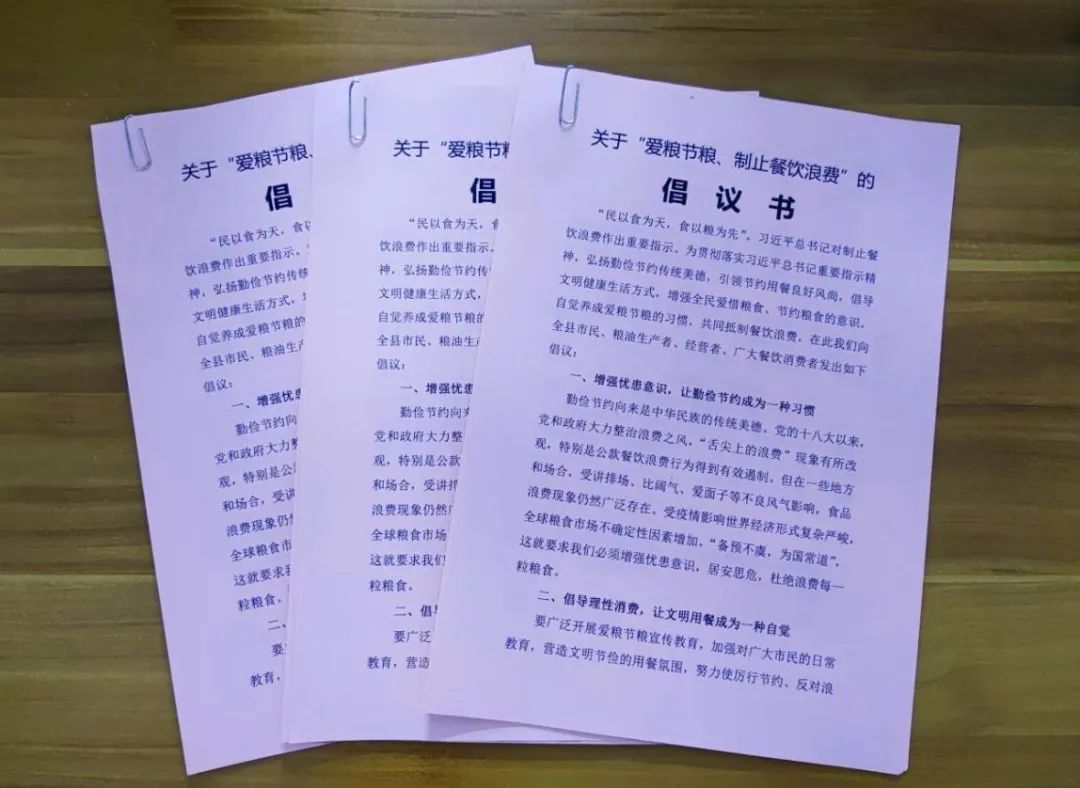 关于“爱粮节粮、
倡
“民以食为天，食以
饮浪费作出重要指示。
神，弘扬勤俭节约传统
文明健康生活方式，
自觉养成爱粮节粮的
全县市民、粮油生产
倡议：
一、增强忧
勤俭节约向
党和政府大力
观，特别是公
和场合，受讲
浪费现象仍
全球粮食市
这就要求
粒粮食。
二、
要
教育，
关于“爱粮节
倡
“民以食为天，食
饮浪费作出重要指示。
神，弘扬勤俭节约传
文明健康生活方式，
自觉养成爱粮节粮的
全县市民、粮油生
倡议：
一、增强忧患
勤俭节约向
党和政府大力整
观，特别是公款
和场合，受讲排
浪费现象仍然
全球粮食市场
这就要求我们
粒粮食。
二、倡
要广泛
教育，营造
关于“爱粮节粮、制止餐饮浪费”的
倡 议 书
“民以食为天，食以粮为先”。习近平总书记对制止餐
饮浪费作出重要指示。为贯彻落实习近平总书记重要指示精
神，弘扬勤俭节约传统美德，引领节约用餐良好风尚，倡导
文明健康生活方式，增强全民爱惜粮食、节约粮食的意识，
自觉养成爱粮节粮的习惯，共同抵制餐饮浪费，在此我们向
全县市民、粮油生产者、经营者、广大餐饮消费者发出如下
倡议：
一、增强忧患意识，让勤俭节约成为一种习惯
勤俭节约向来是中华民族的传统美德。党的十八大以来，
党和政府大力整治浪费之风，“舌尖上的浪费”现象有所改
观，特别是公款餐饮浪费行为得到有效遏制。但在一些地方
和场合，受讲排场、比阔气、爱面子等不良风气影响，食品
浪费现象仍然广泛存在。受疫情影响世界经济形式复杂严峻，
全球粮食市场不确定性因素增加。“备预不虞，为国常道”，
这就要求我们必须增强忧患意识，居安思危，杜绝浪费每一
粒粮食。
二、倡导理性消费，让文明用餐成为一种自觉
要广泛开展爱粮节粮宣传教育，加强对广大市民的日常
教育，营造文明节俭的用餐氛围，努力使厉行节约、反对浪